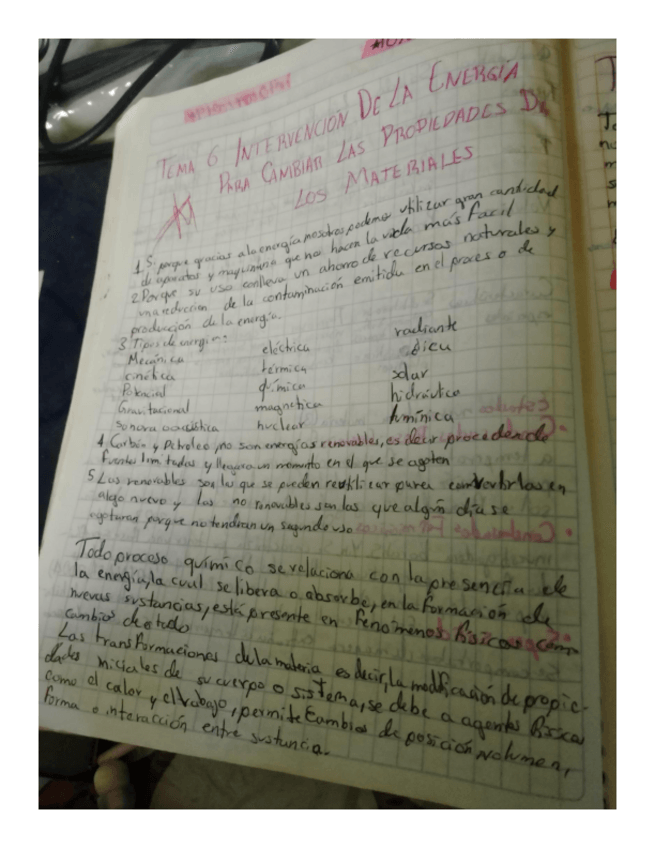 TEMA 6 INTERVENCIÓN DE LA ENERGÍA
PARA CAMBIAR LAS PROPIEDADES DE
LOS MATERIALES
1. Si porque gracias a la energía nosotros podemos utilizar gran cantidad
de aparatos y maquinaria que nos hacen la vida más facil
2 Porque su uso conlleva un ahorro de recursos naturales y
una reducción de la contaminación emitida en el proceso de
producción de la energía.
3 Tipos de energia:
Mecánica eléctrica radiante
cinética térmica
Potencial química solar
Gravitacional magnetica hidráulica
sonora acustica nuclear lumínica
4 Carbón y Petroleo, no son energías renovables, es decir proceden de
fuentes limitadas y llegara un momento en el que se agoten
5 Las renovables son las que se pueden reutilizar para convertirlas en
algo nuevo y las no renovables son las que algún día se
agotaran porque no tendran un segundo uso
Todo proceso químico se relaciona con la presencia de
la energía, la cual se libera o absorbe, en la formación de
nuevas sustancias, está presente en fenómenos físicos como
cambios de estado
Las transformaciones de la materia es decir, la modificación de propie-
dades iniciales de su cuerpo o sistema, se debe a agentes físicos
como el calor y el trabajo, permite cambios de posición volumen,
forma o interacción entre sustancia.